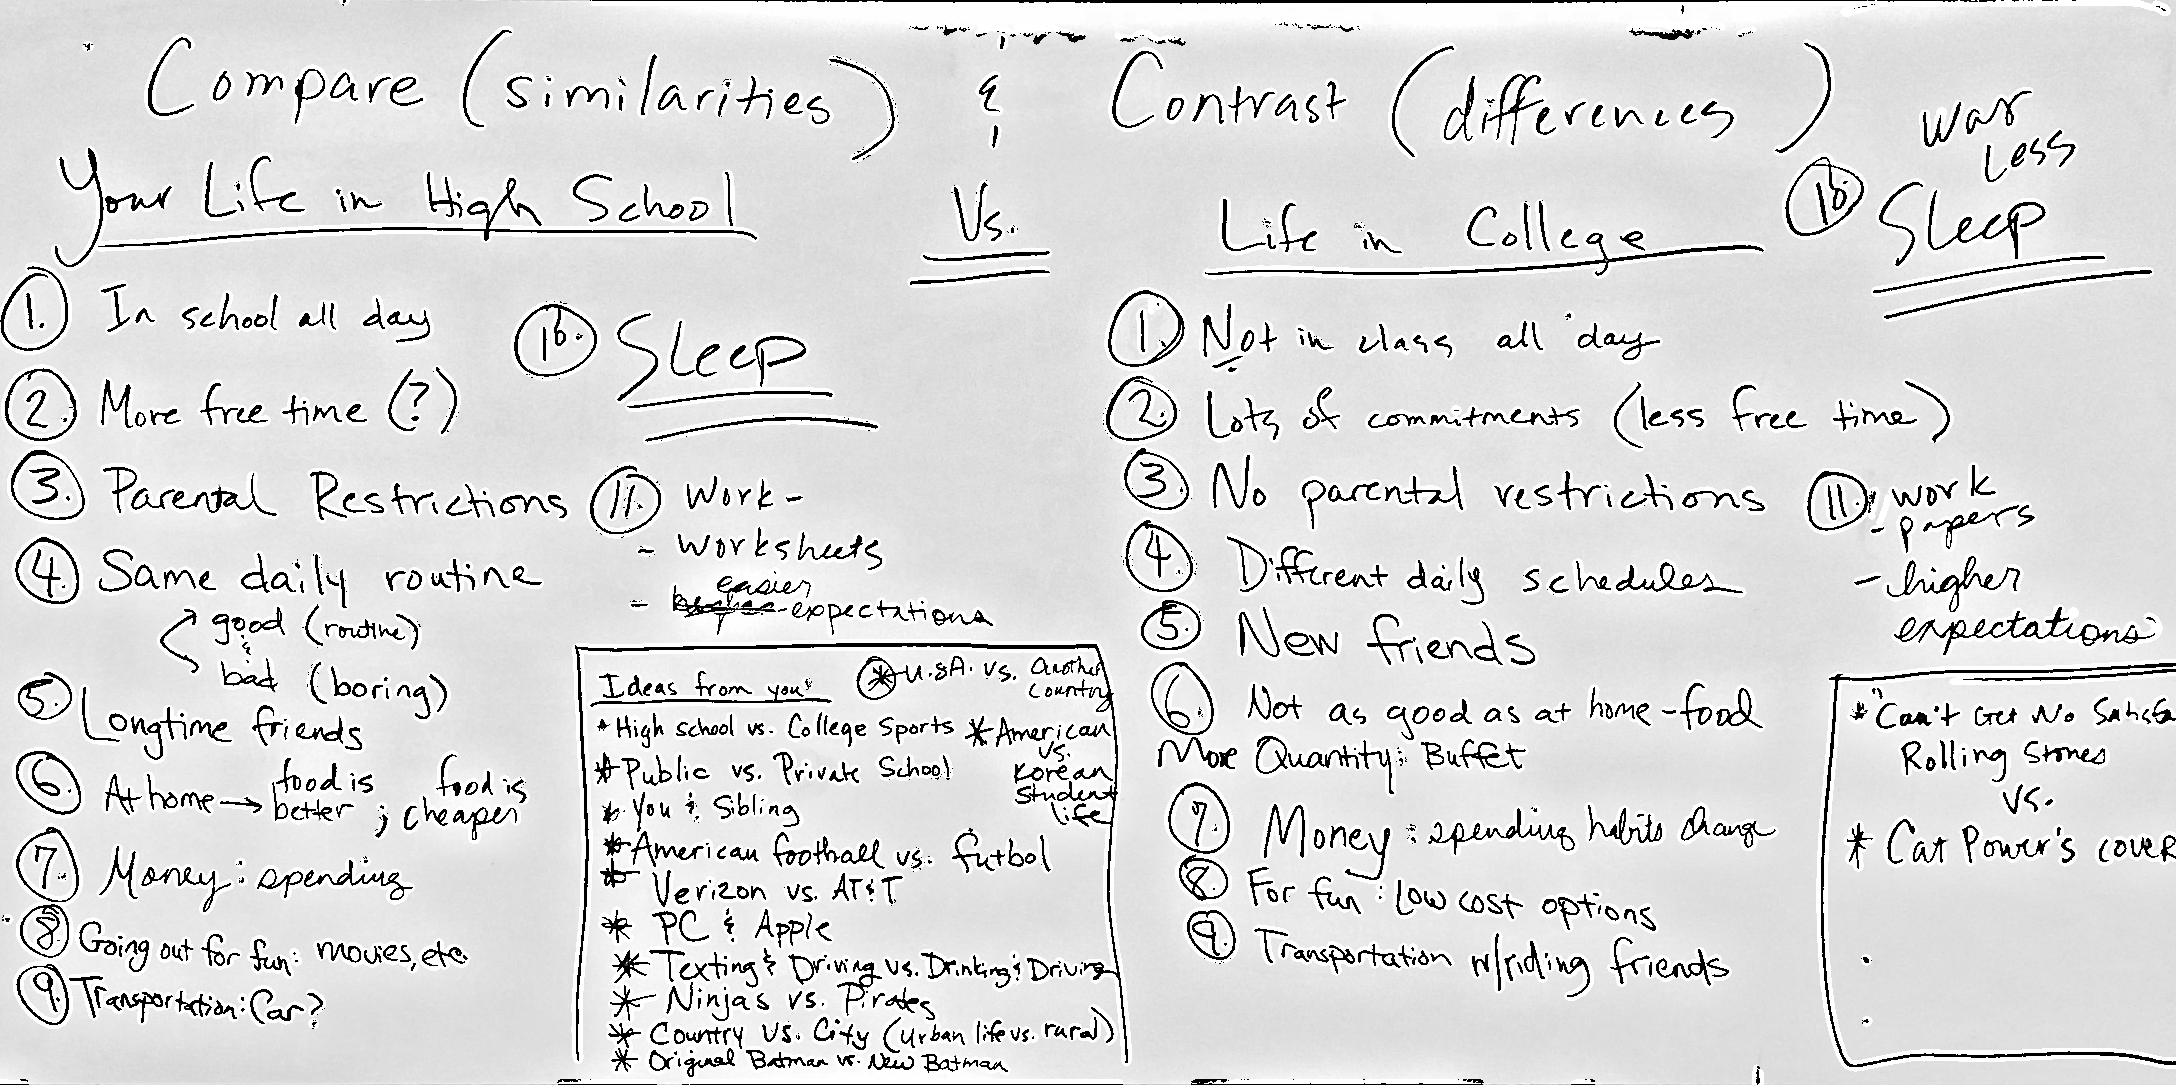 Compare (similarities) & Contrast (differences)
Your Life in High School Vs. Life in College
1. In school all day
2. More free time (?)
3. Parental Restrictions
4. Same daily routine
good (routine)
&
bad (boring)
5. Longtime friends
6. At home → food is better ; food is cheaper
7. Money: spending
8. Going out for fun: movies, etc.
9. Transportation: Car?
10. Sleep
11. Work -
- worksheets
- easier expectations
Ideas from you:
* U.S.A. vs. Another Country
* High school vs. College Sports
* American vs. Korean student life
* Public vs. Private School
* You & Sibling
* American football vs. futbol
* Verizon vs. AT&T
* PC & Apple
* Texting & Driving vs. Drinking & Driving
* Ninjas vs. Pirates
* Country vs. City (urban life vs. rural)
* Original Batman vs. New Batman
1. Not in class all day
2. Lots of commitments (less free time)
3. No parental restrictions
4. Different daily schedules
5. New friends
6. Not as good as at home - food
More Quantity: Buffet
7. Money: spending habits change
8. For fun: low cost options
9. Transportation w/riding friends
10. way less
Sleep
11. work
- papers
- higher
expectations
* "Can't Get No Satisfa
Rolling Stones
vs.
* Cat Power's cover